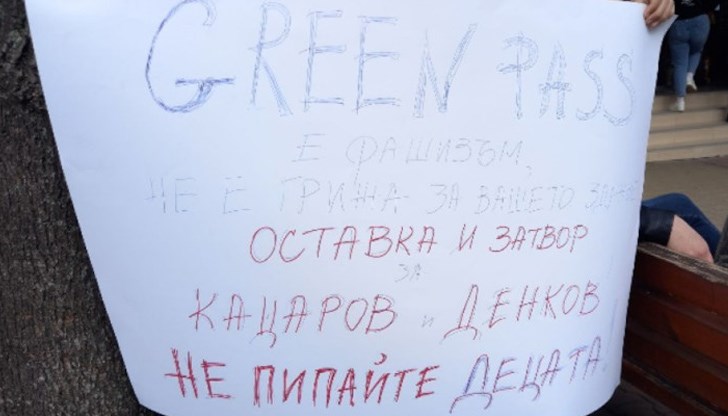 GREEN PASS
Е ФАШИЗЪМ,
НЕ Е ГРИЖА ЗА ВАШЕТО
ОСТАВКА И ЗАТВОР
ЗА
КАЦАРОВ и ДЕНКОВ
НЕ ПИПАЙТЕ ДЕЦАТА!